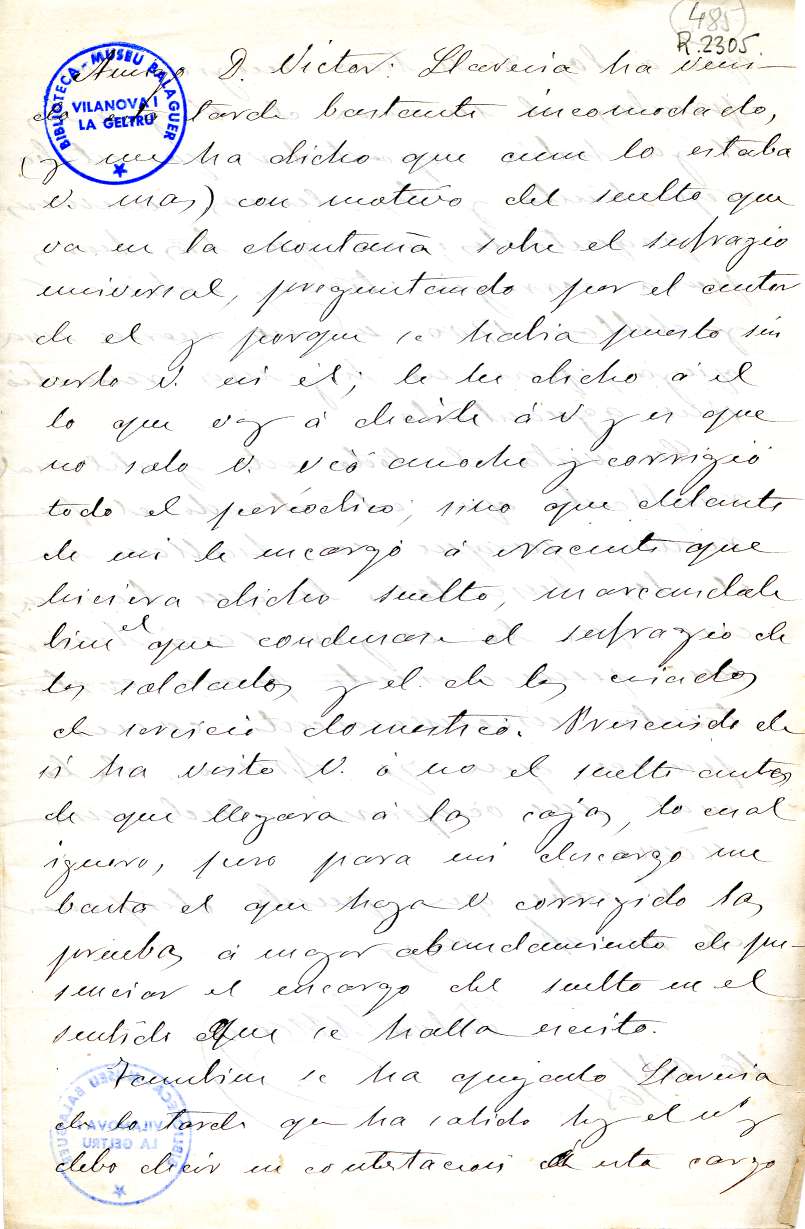 485
R.2305.
BIBLIOTECA - MUSEU BALAGUER
VILANOVA I
LA GELTRÚ
Amigo D. Victor: Llavería ha veni-
do esta tarde bastante incomodado,
(y me ha dicho que aun lo estaba
V. mas) con motivo del suelto que
va en la Montaña sobre el sufragio
universal, preguntando por el autor
de el y porque se habia puesto sin
verlo V. en él; le he dicho á el
lo que voy á decirle á V y es que
no solo V. vió anoche y corrigió
todo el periódico; sino que delante
de mi le encargó á Vacente que
hiciera dicho suelto, marcandole
bien el que condenase el sufragio de
los soldados y el de los criados
de servicio domestico. Prescindo de
si ha visto V. ó no el suelto antes
de que llegara á las cajas, lo cual
ignoro, pero para mi descargo me
basta el que haya V corregido las
pruebas á mayor abundamiento de pre-
senciar el encargo del suelto en el
sentido que se halla escrito.
Tambien se ha quejado Llavería
de lo tarde que ha salido hoy el nº y
debo decir en contestacion á este cargo
BIBLIOTECA MUSEU BALAGUER
VILANOVA I
LA GELTRÚ